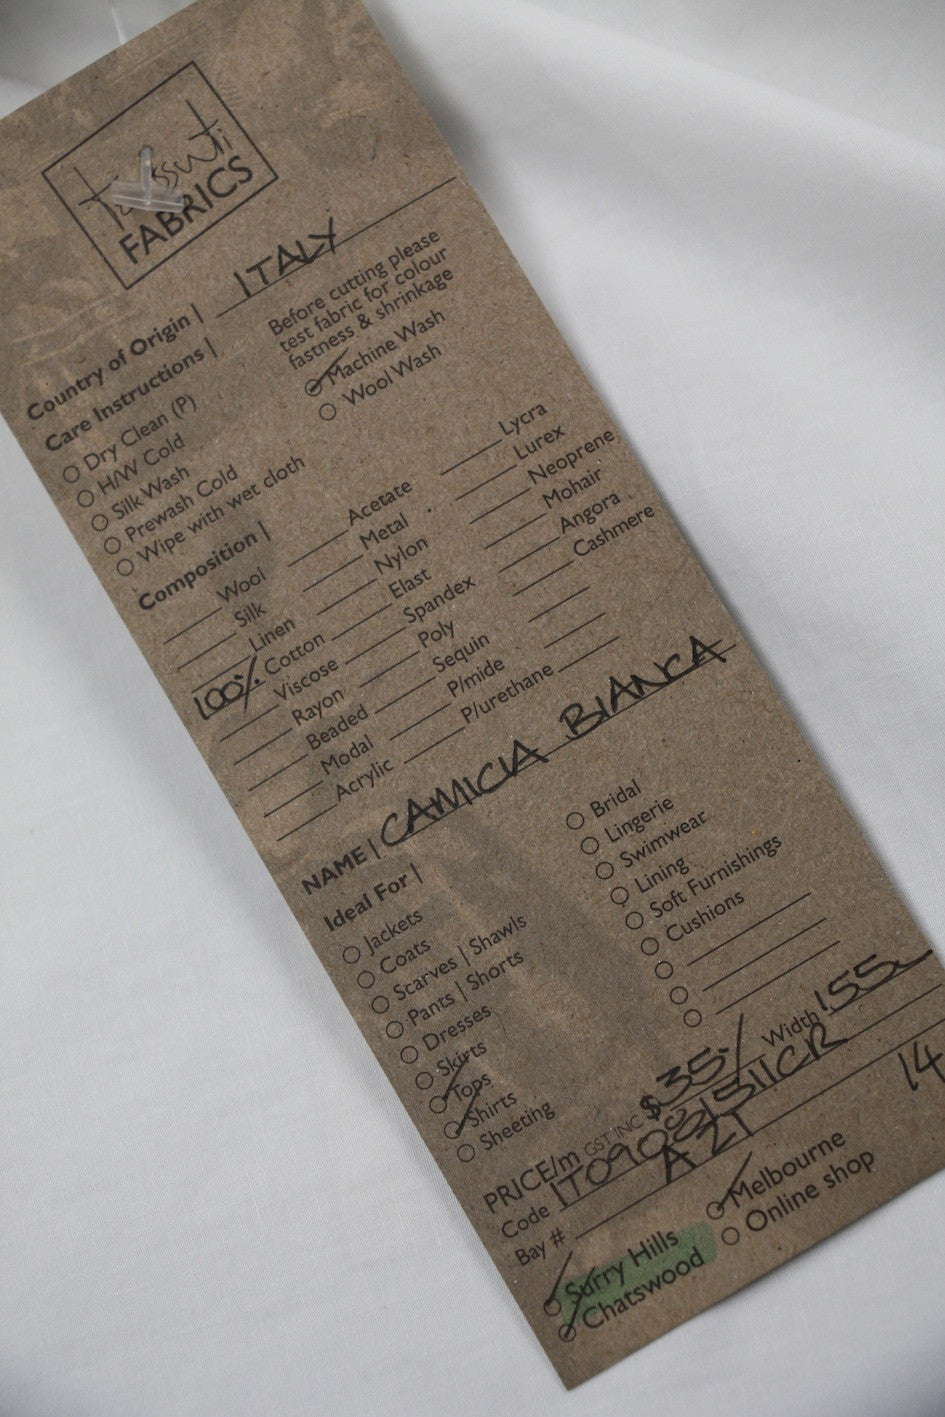 Tessuti
FABRICS
Country of Origin | ITALY
Care Instructions |
Before cutting please
test fabric for colour
fastness & shrinkage
Dry Clean (P)
H/W Cold
Silk Wash
Prewash Cold
Wipe with wet cloth
Machine Wash
Wool Wash
Composition |
Wool
Silk
Linen
100% Cotton
Viscose
Rayon
Beaded
Modal
Acrylic
Acetate
Metal
Nylon
Elast
Spandex
Poly
Sequin
P/mide
P/urethane
Lycra
Lurex
Neoprene
Mohair
Angora
Cashmere
NAME | CAMICIA BIANCA
Ideal For |
Jackets
Coats
Scarves | Shawls
Pants | Shorts
Dresses
Skirts
Tops
Shirts
Sheeting
Bridal
Lingerie
Swimwear
Lining
Soft Furnishings
Cushions
PRICE/m GST INC $35- Width 155
Code IT09081511CR
Bay # AZT 14
Surry Hills
Chatswood
Melbourne
Online shop